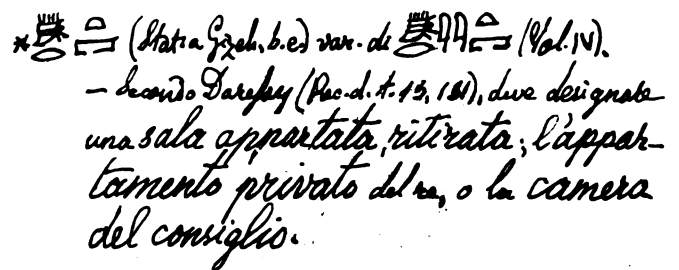 * (Statua Gizeh, b.e.) var. di (Vol. IV).
— Secondo Daressy (Rec. d. t. 13, 181), deve designare
una sala appartata, ritirata; l'appar-
tamento privato del re, o la camera
del consiglio.